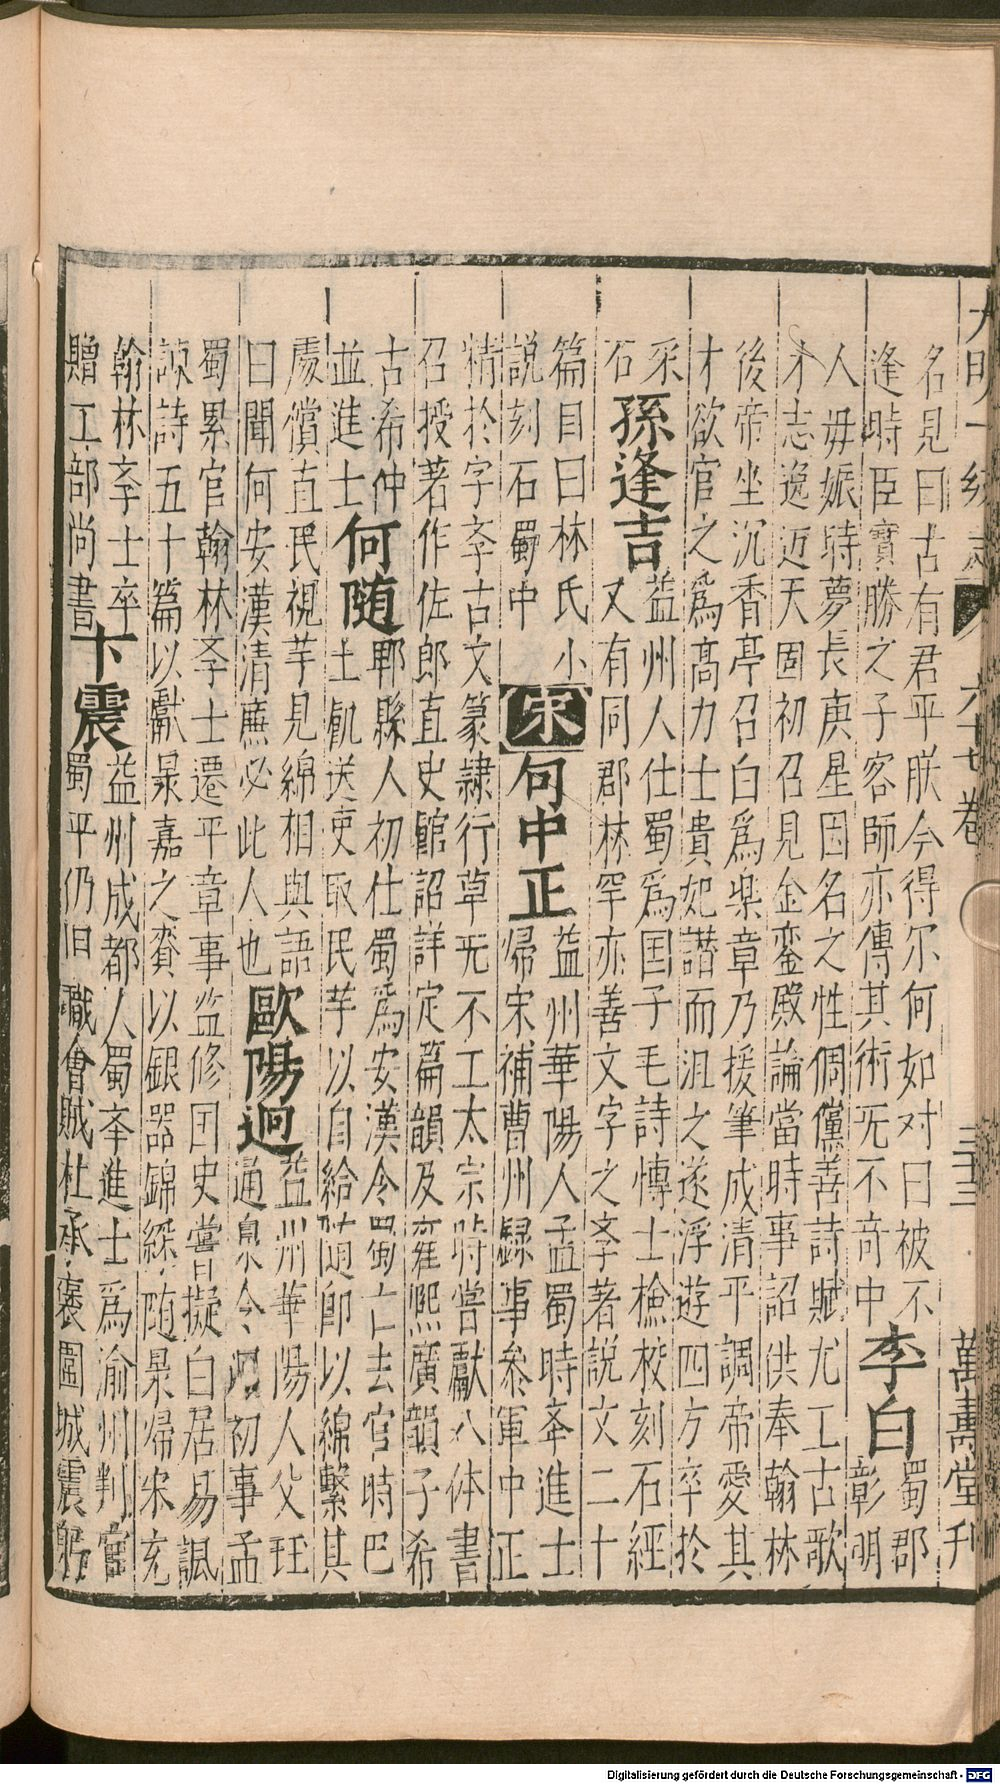 大明一統志 六十七卷 三十三 萬壽堂刊
名見曰古有君平朕今得尔何如对曰被不
逢時臣實勝之子客師亦傳其術旡不竒中
李白
蜀郡
彰明
人毋娠時夢長庚星因名之性倜儻善詩賦尤工古歌
才志逸迈天囯初召見金鑾殿論當時事詔供奉翰林
後帝坐沉香亭召白為楽章乃援筆成清平調帝愛其
才欲官之為髙力士貴妃譛而沮之遂浮遊四方卒於
采
石
孫逢吉
益州人仕蜀為囯子毛詩愽士檢校刻石經
又有同郡林罕亦善文字之斈著説文二十
篇目曰林氏小
説刻石蜀中
宋
句中正
益州華陽人孟蜀時举進士
帰宋補曹州録事参軍中正
精於字斈古文篆隷行草旡不工太宗時嘗獻八体書
召授著作佐郎直史館詔詳定篇韻及雍熈廣韻子希
古希仲
並進士
何随
郫縣人初仕蜀為安漢令蜀亡去官時巴
土飢送吏取民芋以自給随即以綿繫其
處償直民視芋見綿相與語
曰聞何安漢清亷必此人也
歐陽迥
益州華陽人父珏
通泉令迥初事孟
蜀累官翰林斈士遷平章事监修囯史嘗擬白居易諷
諫詩五十篇以獻㫤嘉之賚以銀器錦綵随㫤帰宋充
翰林斈士卒
贈工部尚書
卞震
益州成都人蜀举進士為渝州判官
蜀平仍旧職會賊杜承褒圍城震躬
Digitalisierung gefördert durch die Deutsche Forschungsgemeinschaft - DFG